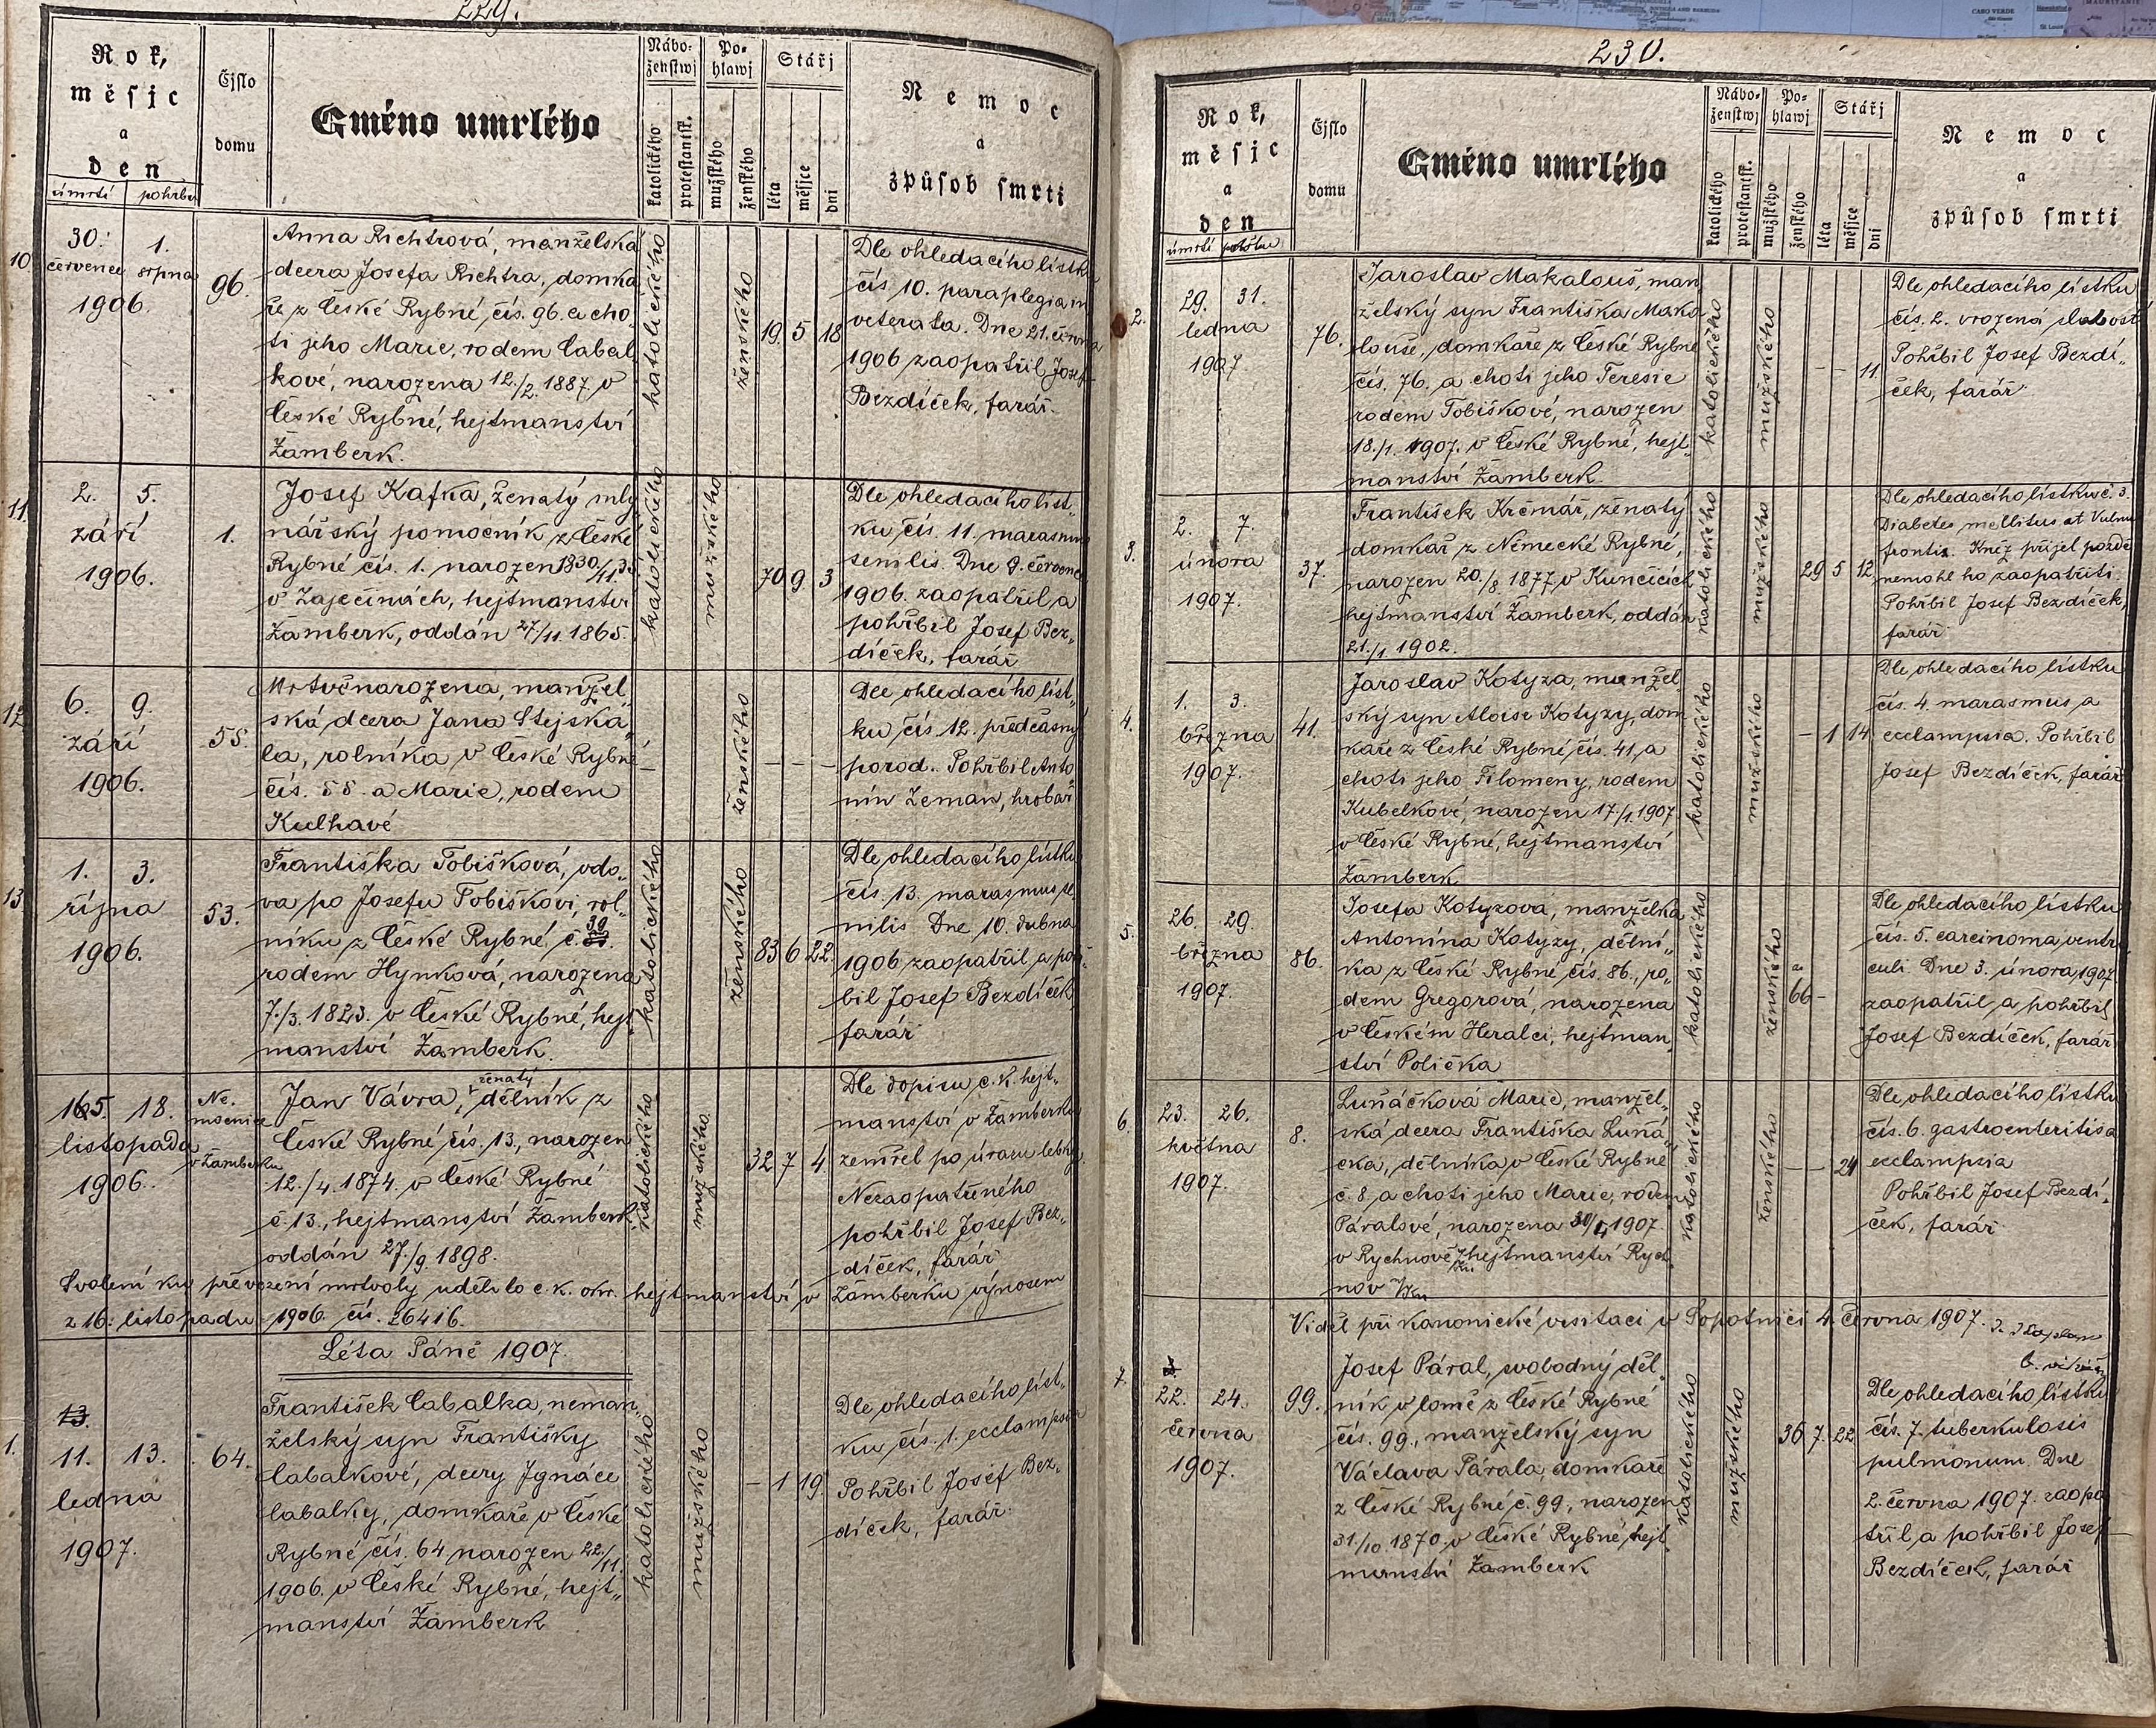 229.
Rok,
měsjc
a
den
úmrtí pohřbu
Čjslo
domu
Gméno umrlého
Nábo-
ženstwj
katolického
protestantsk.
Po-
hlawj
mužského
ženského
Stářj
léta
měsjce
dni
Nemoc
a
způsob smrti
10.
30. 1.
července srpna
1906.
96.
Anna Richtrová, manželská
dcera Josefa Richtra, domka
ře z České Rybné, čís. 96. a cho-
ti jeho Marie, rodem Cabal,
kové, narozena 12./2. 1887. v
České Rybné, hejtmanství
Žamberk.
katolického
ženského
19. 5 18
Dle ohledacího lístku
čís 10. paraplegia in
veterata. Dne 21. června
1906 zaopatřil Josef
Bezdíček, farář.
11.
2. 5.
září
1906.
1.
Josef Kafka, ženatý mly
nářský pomocník z České
Rybné čís. 1. narozen
v Zaječinách, hejtmanství
Žamberk, oddán 27/11. 1865.
katolického
mužského
70 9 3
Dle ohledacího líst„
ku čís. 11. marasmus
senilis. Dne 9. července
1906. zaopatřil a
pohřbil Josef Bez„
díček, farář
12.
6. 9.
září
1906.
55.
Mrtvěnarozena, manžel„
ská dcera Jana Stejska„
la, rolníka v České Rybné
čís. 55. a Marie, rodem
Kulhavé
—
ženského
— — —
Dle ohledacího líst„
ku čís 12. předčasný
porod. Pohřbil Anto
nín Zeman, hrobař
13.
1. 3.
října
1906.
53.
Františka Tobišková, vdo„
va po Josefu Tobiškovi, rol„
níku z České Rybné, č. 30
rodem Hynková, narozena
7./3. 1823. v České Rybné, hejt
manství Žamberk.
katolického
ženského
83 6 22.
Dle ohledacího lístku
čís. 13. marasmus se
nilis Dne 10. dubna
1906 zaopatřil a pohř„
bil Josef Bezdíček,
farář
15. 18.
listopadu
1906.
Ne.
mocnice
v Žamberku
Jan Vávra, ženatý dělník z
České Rybné čís. 13., narozen
12./4. 1874. v České Rybné
č. 13., hejtmanství Žamberk,
oddán 27./9. 1898.
katolického
mužského
32 7 4
Dle dopisu c.k. hejt„
manství v Žamberku
zemřel po úrazu lebky.
Nezaopatřeného
pohřbil Josef Bez„
díček, farář
Svolení ku převezení mrtvoly udělilo c.k. okr. hejtmanství v Žamberku výnosem
z 16. listopadu 1906. čís. 26416.
Léta Páně 1907.
1.
13.
11. 13.
ledna
1907.
64.
František Cabalka, neman„
želský syn Františky
Cabalkové, dcery Ignáce
Cabalky, domkaře v České
Rybné čís. 64 narozen 22./11.
1906. v České Rybné, hejt„
manství Žamberk
katolického
mužského
— 1 19.
Dle ohledacího líst„
ku čís. 1. ecclampsia
Pohřbil Josef Bez„
díček, farář.
230.
Rok,
měsjc
a
den
úmrtí pohřbu
Čjslo
domu
Gméno umrlého
Nábo-
ženstwj
katolického
protestantsk.
Po-
hlawj
mužského
ženského
Stářj
léta
měsjce
dni
Nemoc
a
způsob smrti
2.
29. 31.
ledna
1907
76.
Jaroslav Makalouš, man
želský syn Františka Maka
louše, domkáře z České Rybné
čís. 76. a choti jeho Teresie
rodem Tobiškové, narozen
18./1. 1907. v České Rybné, hejt„
manství Žamberk.
katolického
mužského
— — 11.
Dle ohledacího lístku
čís. 2. vrozená slabost
Pohřbil Josef Bezdí„
ček, farář
3.
2. 7.
února
1907.
37.
František Krčmář, ženatý
domkař z Německé Rybné,
narozen 20./8. 1877 v Kunčicích,
hejtmanství Žamberk, oddán
21./1. 1902.
katolického
mužského
29 5 12
Dle ohledacího lístku č. 3.
Diabetes mellitus at Vulnus
frontis. Kněz přijel pozdě
nemohl ho zaopatřiti.
Pohřbil Josef Bezdíček,
farář
4.
1. 3.
března
1907.
41.
Jaroslav Kotyza, manžel„
ský syn Aloise Kotyzy, dom
kaře z České Rybné, čís. 41, a
choti jeho Filomeny, rodem
Kubelkové, narozen 17/1. 1907
v České Rybné, hejtmanství
Žamberk
katolického
mužského
— 1 14
Dle ohledacího lístku
čís. 4. marasmus a
ecclampsia. Pohřbil
Josef Bezdíček, farář
5.
26. 29.
března
1907.
86.
Josefa Kotyzová, manželka
Antonína Kotyzy, dělní„
ka z České Rybné čís. 86., ro„
dem Gregorová, narozena
v Českém Heralci, hejtman„
ství Polička
katolického
ženského
66 —
Dle ohledacího lístku
čís. 5. carcinoma ventri
culi. Dne 3. února 1907
zaopatřil a pohřbil
Josef Bezdíček, farář
6.
23. 26.
května
1907.
8.
Luňáčková Marie, manžel„
ská dcera Františka Luňá„
čka, dělníka v České Rybné
č. 8 a choti jeho Marie, rodem
Páralové, narozena 30/4. 1907.
v Rychnově hejtmanství Rych„
nov
katolického
ženského
— — 24
Dle ohledacího lístku
čís. 6. gastroenteritis a
ecclampsia
Pohřbil Josef Bezdí„
ček, farář
Viděl při kanonické visitaci v Sopotnici 4. června 1907.
7.
22. 24.
června
1907.
99.
Josef Páral, svobodný děl„
ník v lomě z České Rybné
čís. 99., manželský syn
Václava Párala, domkaře
z České Rybné č. 99, narozen
31./10. 1870. v České Rybné, hejt
manství Žamberk
katolického
mužského
36 7. 22
Dle ohledacího lístku
čís. 7. tuberkulosis
pulmonum. Dne
2. června 1907. zaopa
třil a pohřbil Josef
Bezdíček, farář